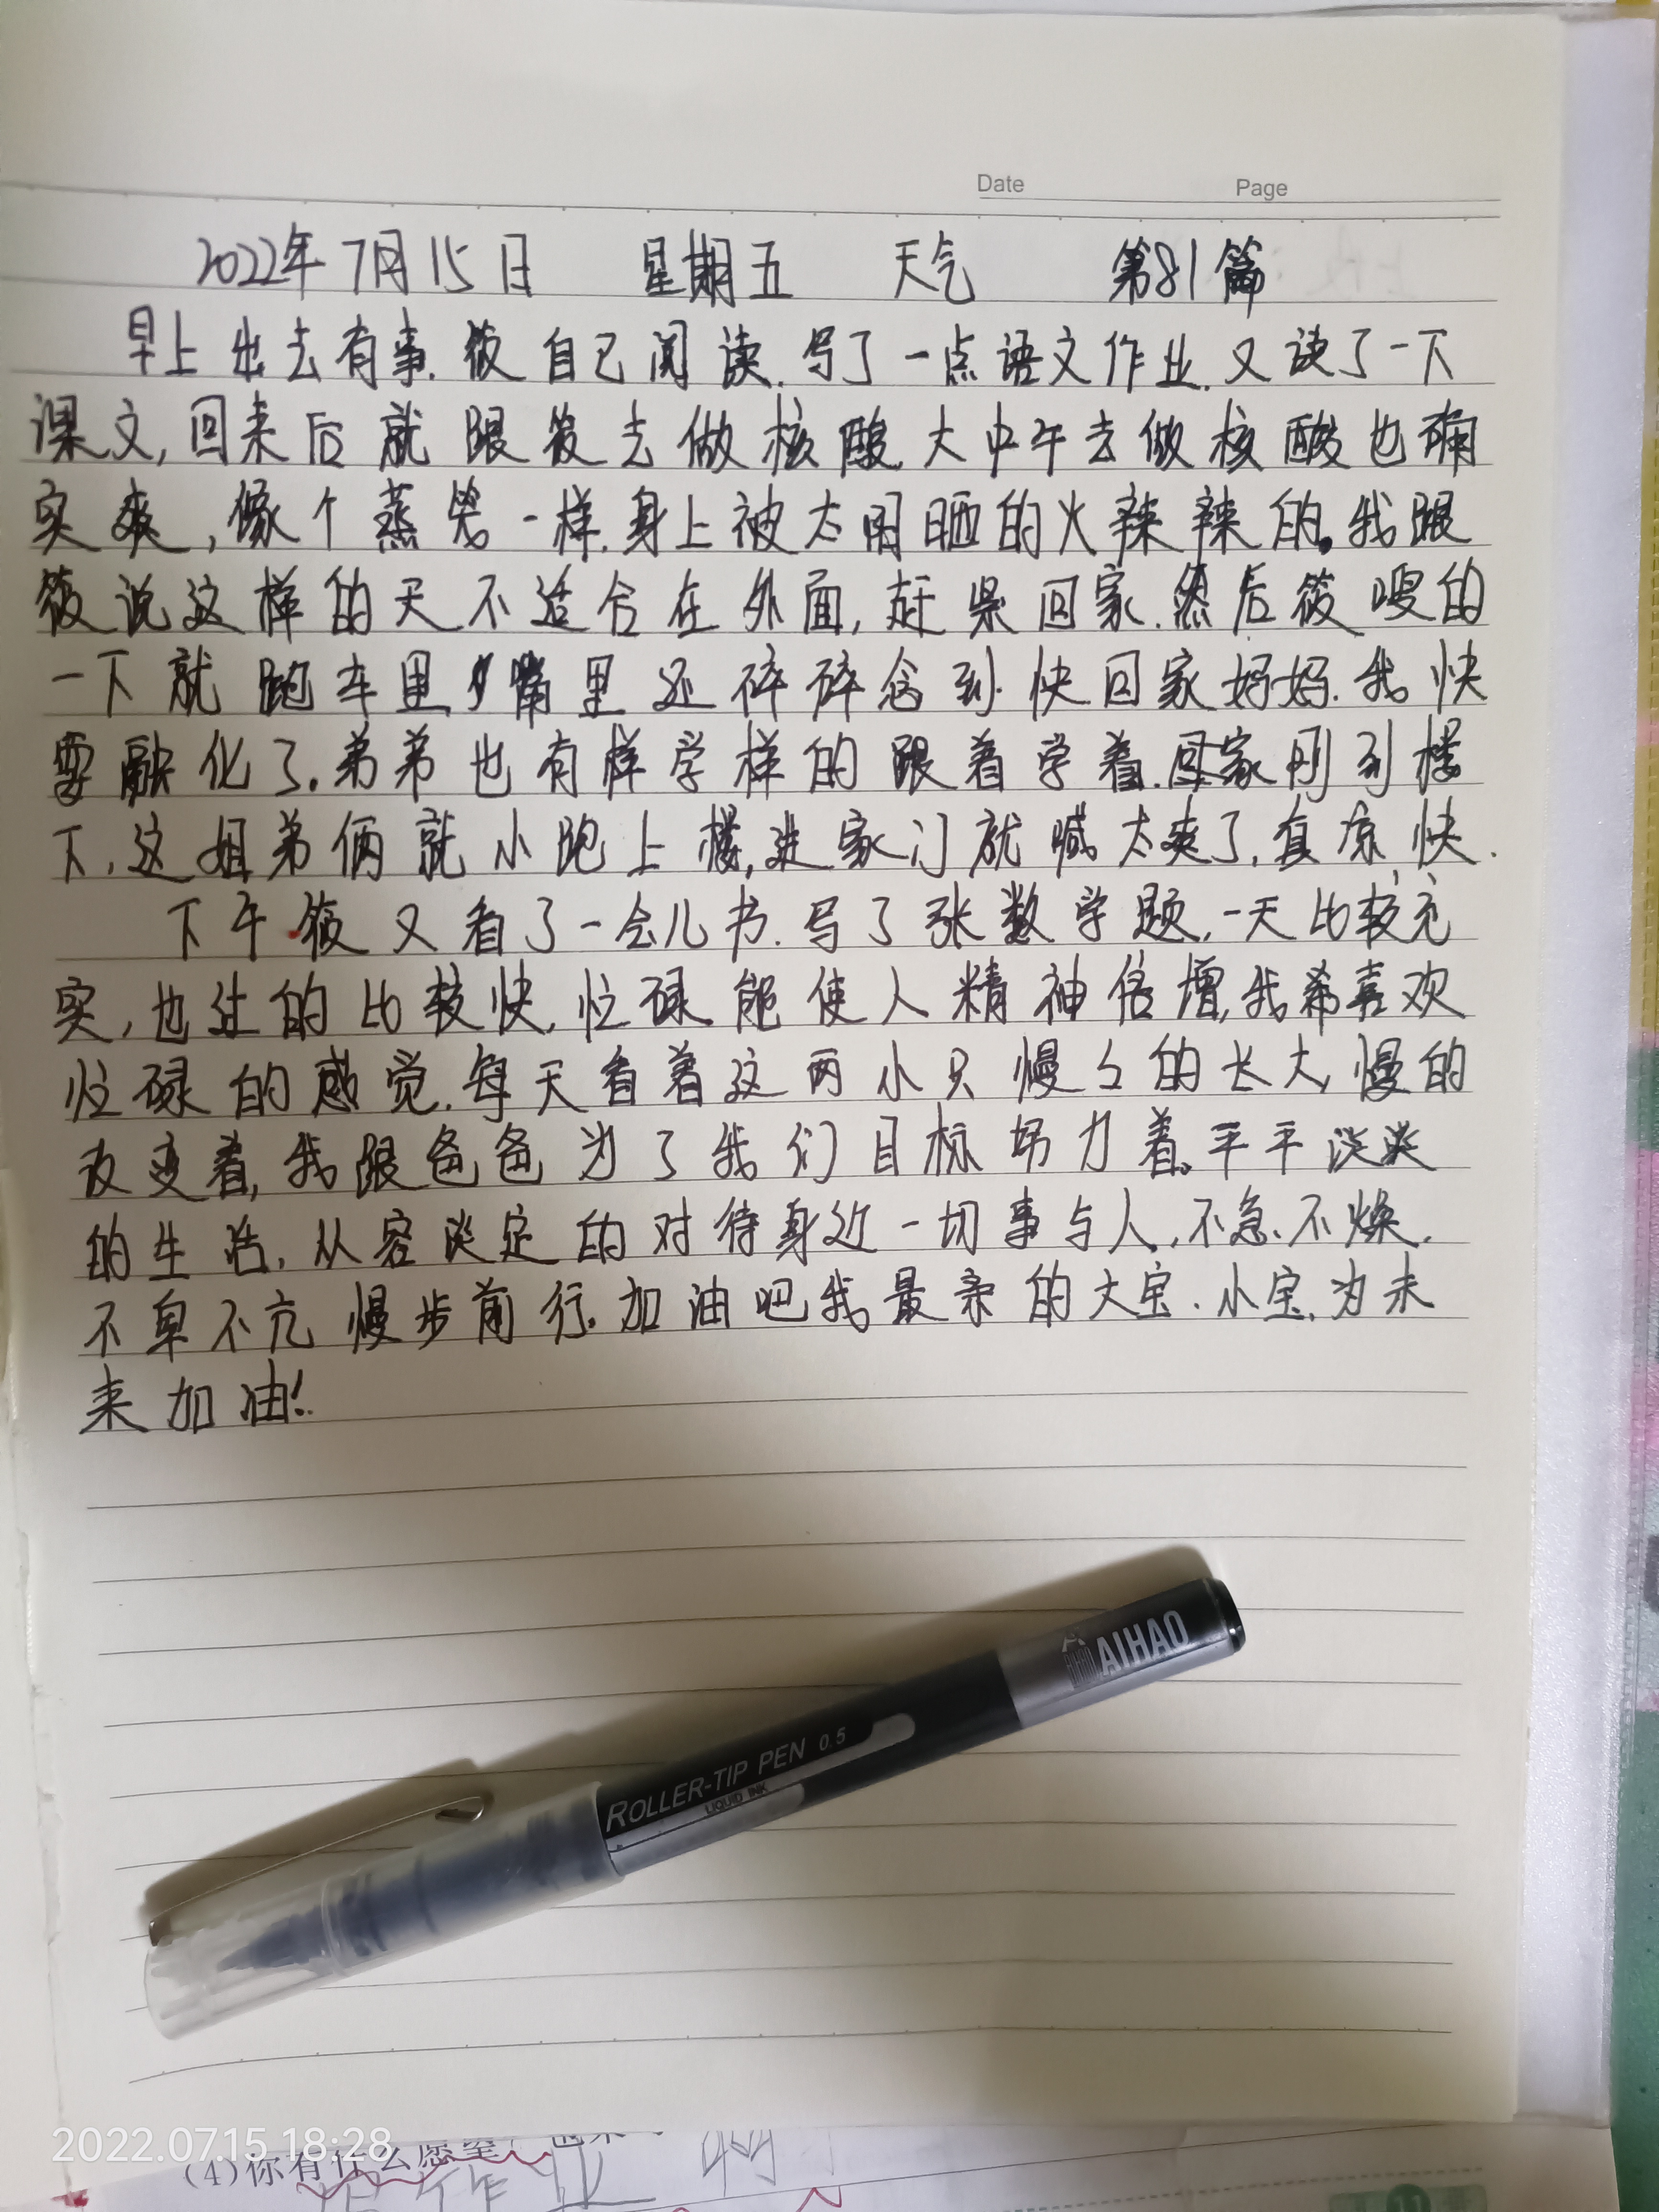 Date Page
2022年7月15日 星期五 天气 第81篇
早上出去有事.筱自己阅读.写了一点语文作业.又读了一下
课文,回来后就跟筱去做核酸.大中午去做核酸也确
实爽,像个蒸笼一样.身上被太阳晒的火辣辣的.我跟
筱说这样的天不适合在外面,赶紧回家.然后筱嗖的
一下就跑车里,嘴里还碎碎念到快回家妈妈.我快
要融化了.弟弟也有样学样的跟着学着.回家刚到楼
下,这姐弟俩就小跑上楼,进家门就喊太爽了,真凉快.
下午筱又看了一会儿书.写了张数学题,一天比较充
实,也过的比较快,忙碌能使人精神倍增,我希喜欢
忙碌的感觉.每天看着这两小只慢々的长大,慢的
改变着,我跟爸爸为了我们目标努力着.平平淡淡
的生活,从容淡定的对待身边一切事与人,不急、不燥.
不卑不亢慢步前行.加油吧我最亲的大宝.小宝,为未
来加油!
AIHAO
ROLLER-TIP PEN 0.5
LIQUID INK
2022.07.15 18:28
(4)你有什么愿望
作业
11